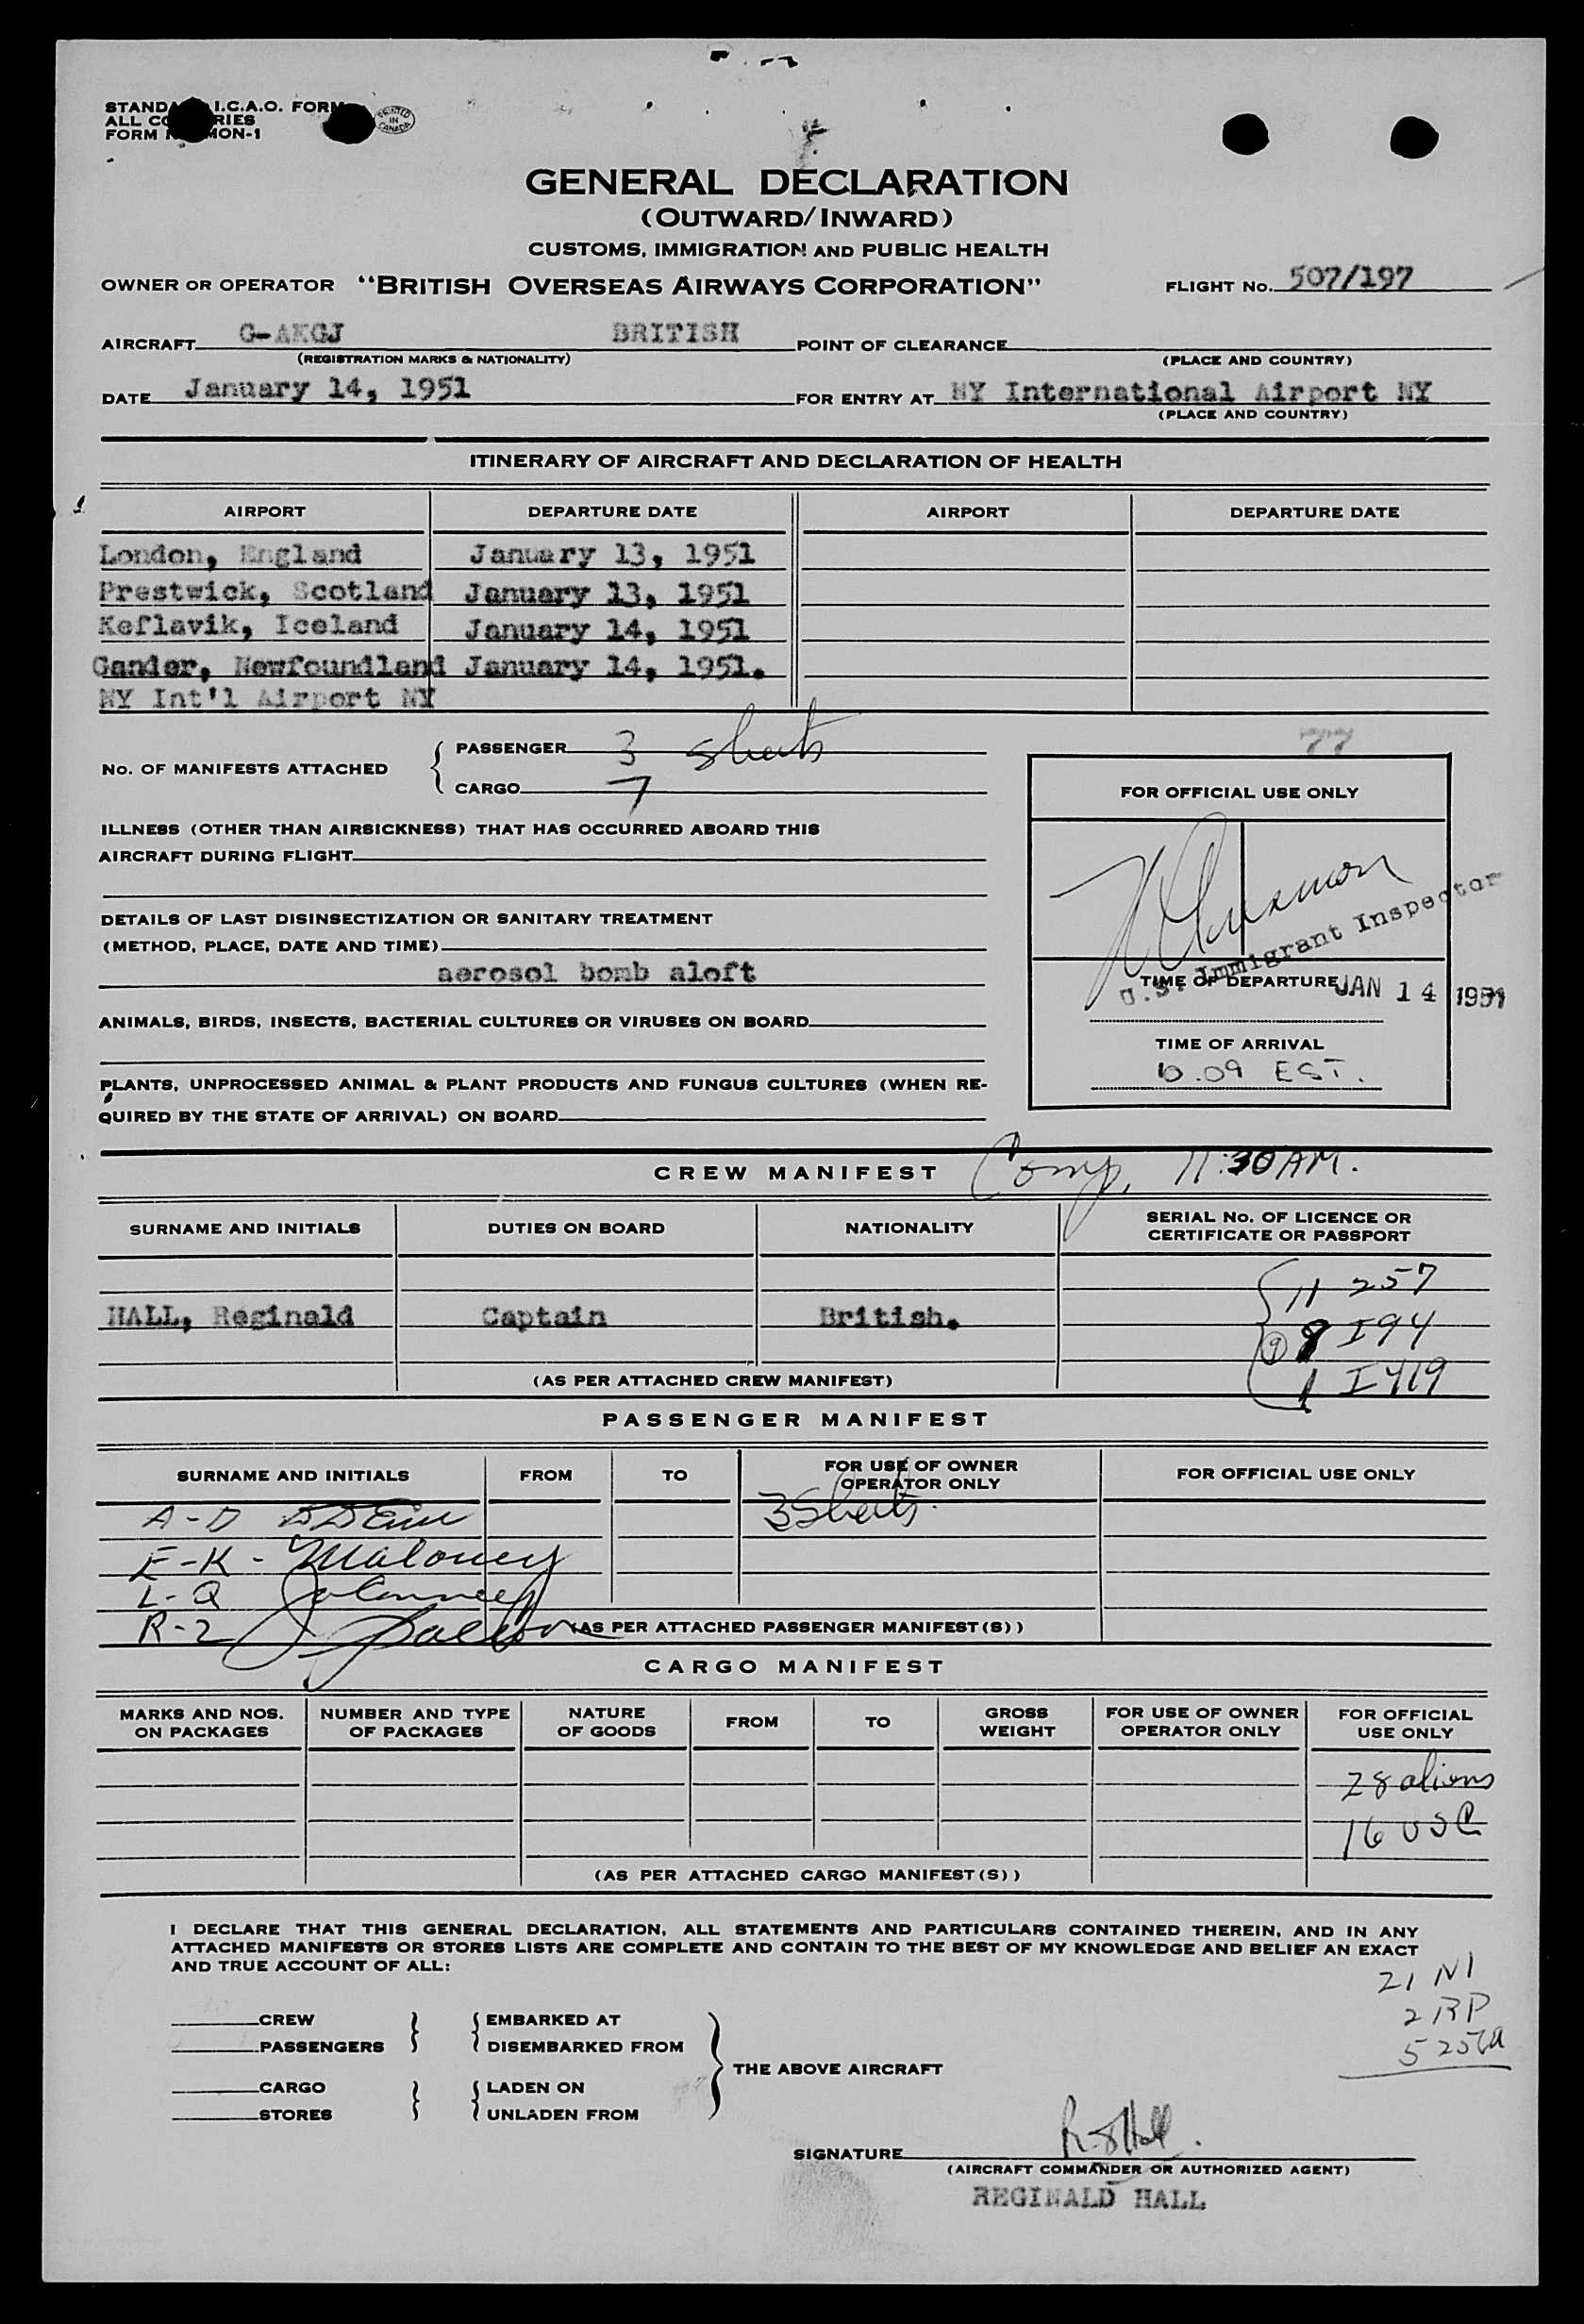 I.C.A.O. FORM
ALL
FORM
PRINTED IN CANADA
GENERAL DECLARATION
(OUTWARD/INWARD)
CUSTOMS, IMMIGRATION AND PUBLIC HEALTH
OWNER OR OPERATOR "BRITISH OVERSEAS AIRWAYS CORPORATION" FLIGHT No. 507/197
AIRCRAFT G-AKGJ BRITISH POINT OF CLEARANCE
(REGISTRATION MARKS & NATIONALITY) (PLACE AND COUNTRY)
DATE January 14, 1951 FOR ENTRY AT NY International Airport NY
(PLACE AND COUNTRY)
ITINERARY OF AIRCRAFT AND DECLARATION OF HEALTH
AIRPORT DEPARTURE DATE AIRPORT DEPARTURE DATE
London, England January 13, 1951
Prestwick, Scotland January 13, 1951
Keflavik, Iceland January 14, 1951
Gander, Newfoundland January 14, 1951.
NY Int'l Airport NY
No. OF MANIFESTS ATTACHED
PASSENGER 3 sheets
CARGO 7
ILLNESS (OTHER THAN AIRSICKNESS) THAT HAS OCCURRED ABOARD THIS
AIRCRAFT DURING FLIGHT
DETAILS OF LAST DISINSECTIZATION OR SANITARY TREATMENT
(METHOD, PLACE, DATE AND TIME)
aerosol bomb aloft
ANIMALS, BIRDS, INSECTS, BACTERIAL CULTURES OR VIRUSES ON BOARD
PLANTS, UNPROCESSED ANIMAL & PLANT PRODUCTS AND FUNGUS CULTURES (WHEN RE-
QUIRED BY THE STATE OF ARRIVAL) ON BOARD
FOR OFFICIAL USE ONLY
U.S. Immigrant Inspector
TIME OF DEPARTURE JAN 14 1951
TIME OF ARRIVAL
10.09 EST.
CREW MANIFEST Comp. 11:30 AM.
SURNAME AND INITIALS DUTIES ON BOARD NATIONALITY SERIAL No. OF LICENCE OR
CERTIFICATE OR PASSPORT
11 257
HALL, Reginald Captain British.
9 8 I94
1 I419
(AS PER ATTACHED CREW MANIFEST)
PASSENGER MANIFEST
SURNAME AND INITIALS FROM TO FOR USE OF OWNER
OPERATOR ONLY FOR OFFICIAL USE ONLY
A-D
3 Sheets.
E-K - Maloney
L-Q
R-Z
(AS PER ATTACHED PASSENGER MANIFEST(S))
CARGO MANIFEST
MARKS AND NOS.
ON PACKAGES
NUMBER AND TYPE
OF PACKAGES
NATURE
OF GOODS
FROM
TO
GROSS
WEIGHT
FOR USE OF OWNER
OPERATOR ONLY
FOR OFFICIAL
USE ONLY
28 aliens
16 USC
(AS PER ATTACHED CARGO MANIFEST(S))
I DECLARE THAT THIS GENERAL DECLARATION, ALL STATEMENTS AND PARTICULARS CONTAINED THEREIN, AND IN ANY
ATTACHED MANIFESTS OR STORES LISTS ARE COMPLETE AND CONTAIN TO THE BEST OF MY KNOWLEDGE AND BELIEF AN EXACT
AND TRUE ACCOUNT OF ALL:
21 NI
2 RP
5 257a
CREW
PASSENGERS
EMBARKED AT
DISEMBARKED FROM
THE ABOVE AIRCRAFT
CARGO
STORES
LADEN ON
UNLADEN FROM
SIGNATURE
(AIRCRAFT COMMANDER OR AUTHORIZED AGENT)
REGINALD HALL